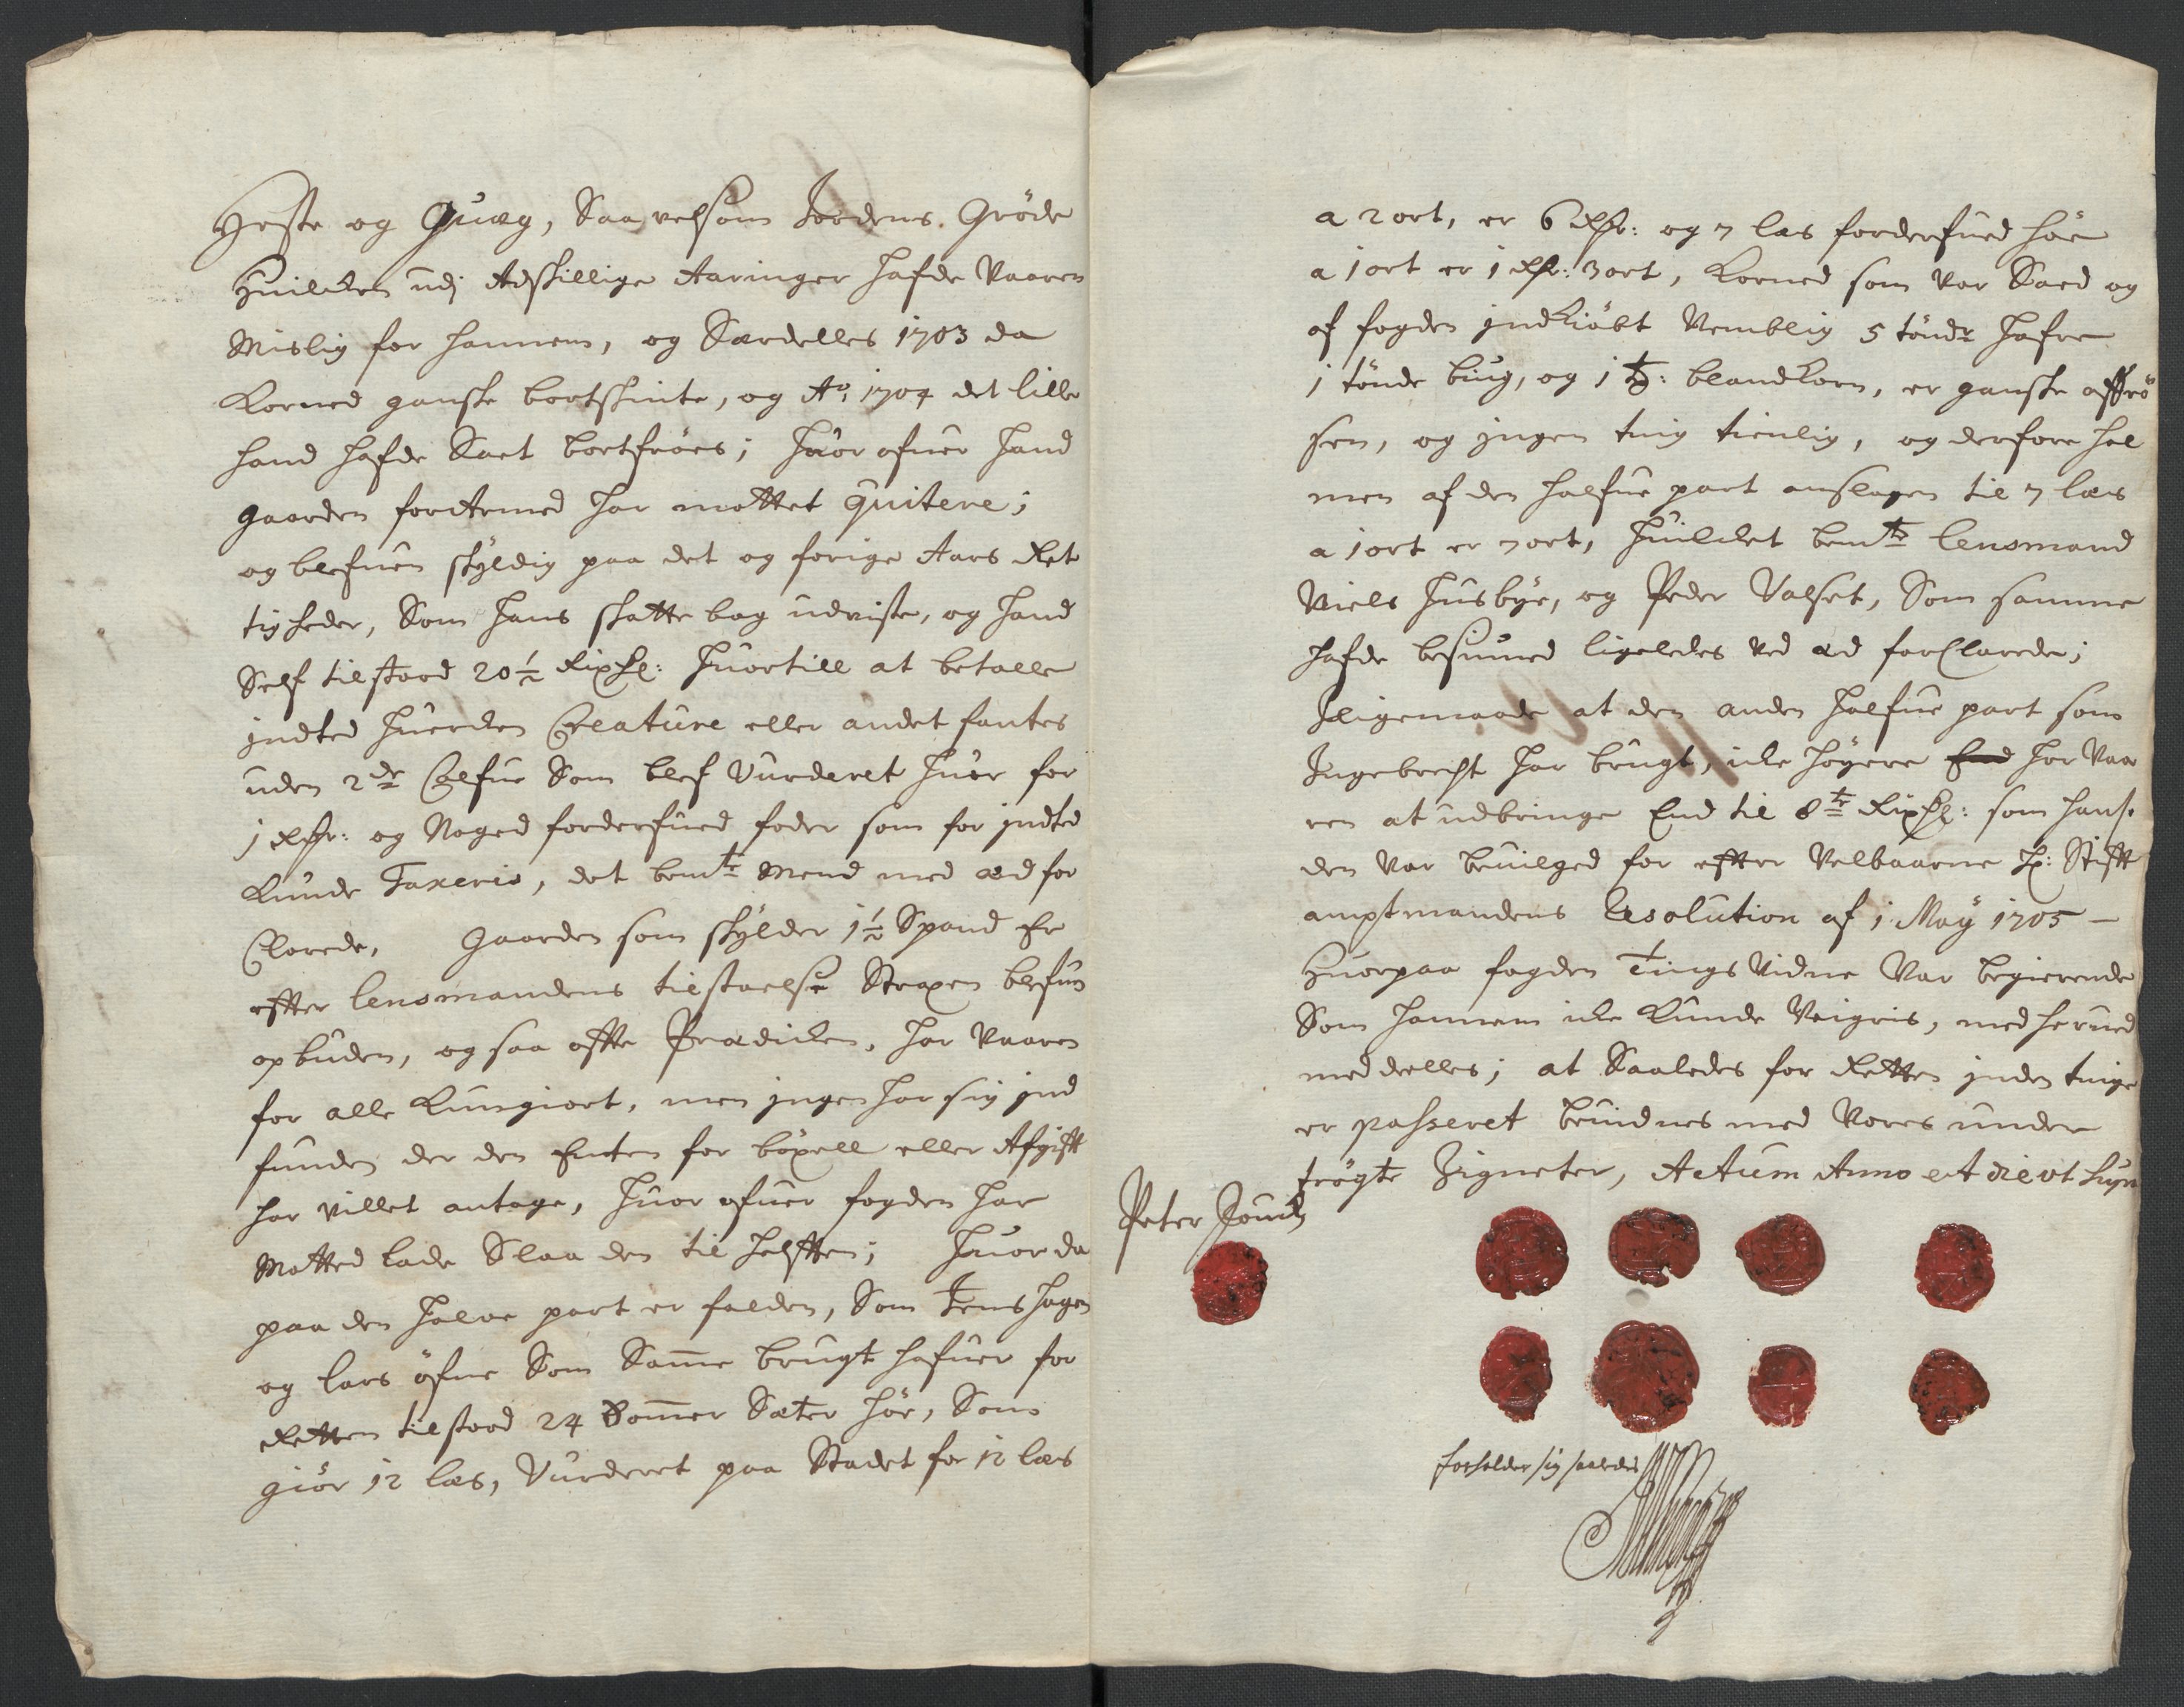 Heste og Quæg, Saavelsom Jordens Gröde
Huilcken udj Adskillige Aaringer hafde Vaaren
Mislig for hannem, og Særdelles 1703 da
Korned ganske bortskinte, og Ao 1704 det lille
hand hafde Saet bortfröes; huor ofuer hand
gaarden forarmed har mottet quitere;
og blefuen skyldig paa det og forige Aars Ret
tigheder, Som hans skatte bog udviste, og hand
Self tilstoed 20½ Rixdl: huortill at betalle
jndted huercken Creature eller andet fantes
uden 2de Calfue Som blef Vurderet huer for
1 Rdr: og Noged forderfued foder som for jndted
Kunde Taxeris, det bemte Mend med æd for
Clarede, Gaarden som skylder 1½ Spand Er
efter lensmandens tilstaelse Straxen blefuen
opbuden, og saa ofte Prædicken, har Vaaren
for alle Kungiort, men jngen har sig jnd
funden der den Enten for böxell eller Afgift
har villet antage, huor ofuer fogden har
Motted lade Slaa den til helften; huor da
paa den halve part er falden, Som Jens hagen
og lars öfne Som Same brugt hafuer for
Retten tilstoed 24 Somer Sæter höe, Som
giör 12 læs, Vurderet paa Stadet for 12 læs
a 2 ort, er 6 Rdr: og 7 læs forderfued höe
a 1 ort er 1 Rdr: 3 ort, Korned som var Saed og
af fogden jndkiöbt Nemblig 5 töndr hafre
1 tönde bÿg, og 1 t: blandkorn, er ganske affrö
sen, og jngen ting tienlig, og derfore hal
men af den halfue part anslagen til 7 læs
a 1 ort er 7 ort, huilcket bemte lensmand
Niels husbÿe, og Peder Valset, Som samme
hafde besiuned ligeledes ved æd forClarede;
Jligemaade at den anden halfue part som
Ingebrecht har brugt, icke höyere har Vaa
ren at udbringe End til 8te Rixdl: som hans.
den var beuilged for efter Velbaarne Hr: Stift
amptmandens Resolution af 1 Maÿ 1705 –
Huorpaa fogden Tings Vidne Var begierende
Som hannem icke Kunde Veigris, med herued
meddelles; at Saaledes for Retten jnden tinge
er passeret beuidnes med Vores under
trögte Zigneter, Actum Anno et die ut Supr
Peter
forholder sig saaledes